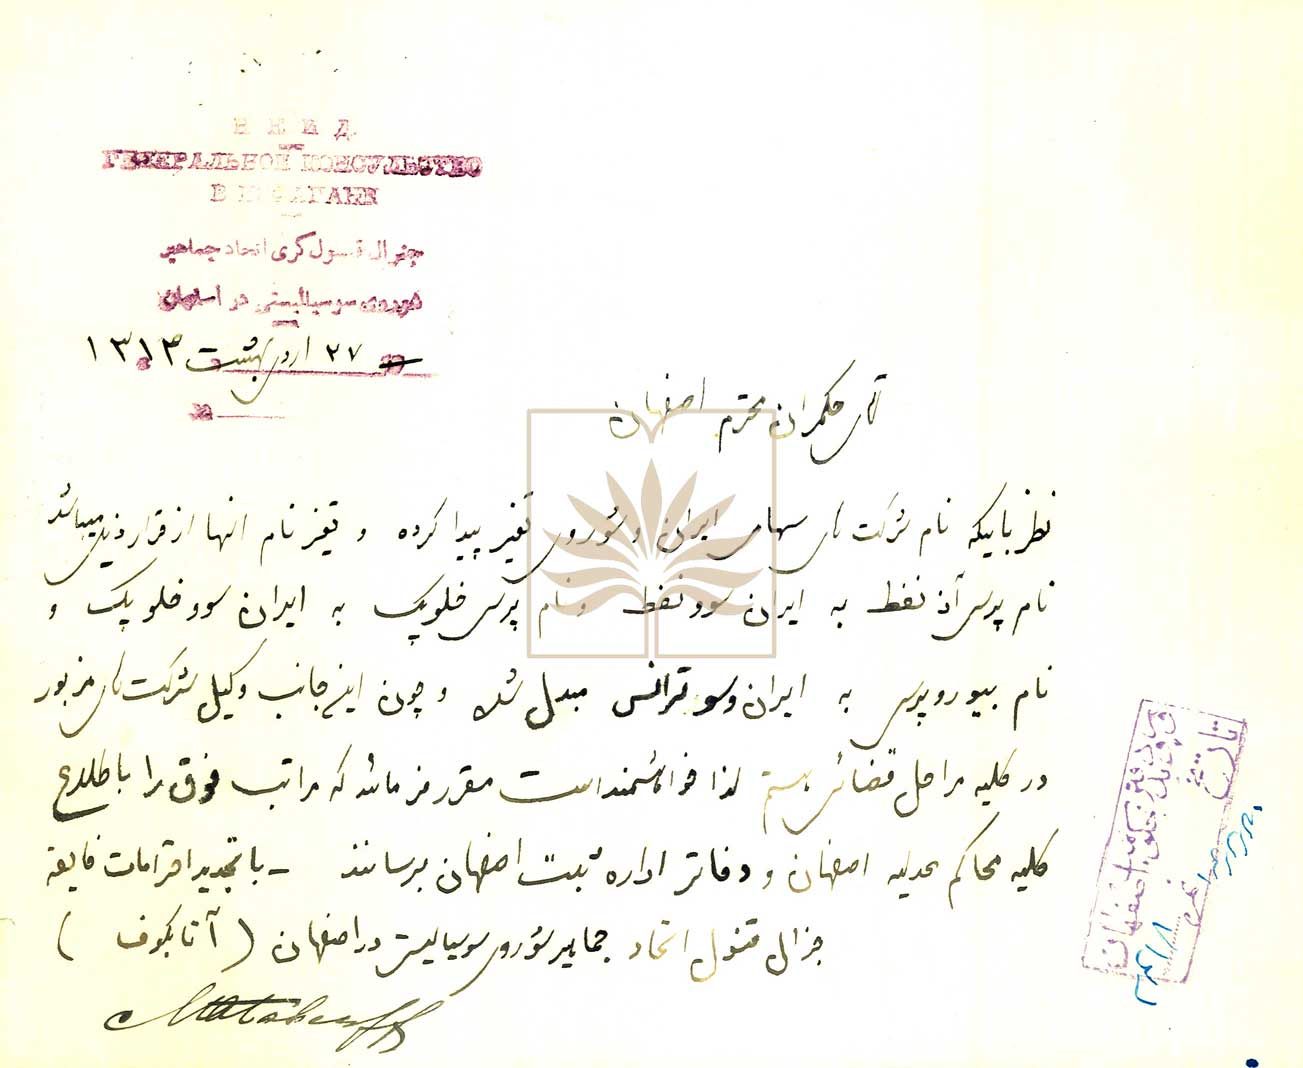 Н К И Д
ГЕНЕРАЛЬНОЕ КОНСУЛЬСТВО
В ИСФАГАНЕ
جنرال قنسول گری اتحاد جماهیر
شوروی سوسیالیستی در اصفهان
۲۷ اردیبهشت ۱۳۱۳
آقای حکمران محترم اصفهان
نظر باینکه نام شرکت های سهامی ایران و شوروی تغیر پیدا کرده و تغیر نام انها از قرار ذیل میباشد
نام پرس آذ نفط به ایران سوو نفط و نام پرس خلوپک به ایران سوو خلوپک و
نام بیوروپرس به ایران سوو ترانس مبدل شده و چون اینجانب وکیل شرکت های مزبور
در کلیه مراحل قضائی هستم لذا خواهشمند است مقرر فرمائید که مراتب فوق را باطلاع
کلیه محاکم عدلیه اصفهان و دفاتر اداره ثبت اصفهان برسانند - با تجدید احترامات فایقه
جنرال قنسول اتحاد جماهیر شوروی سوسیالیستی در اصفهان ( آتابکوف )